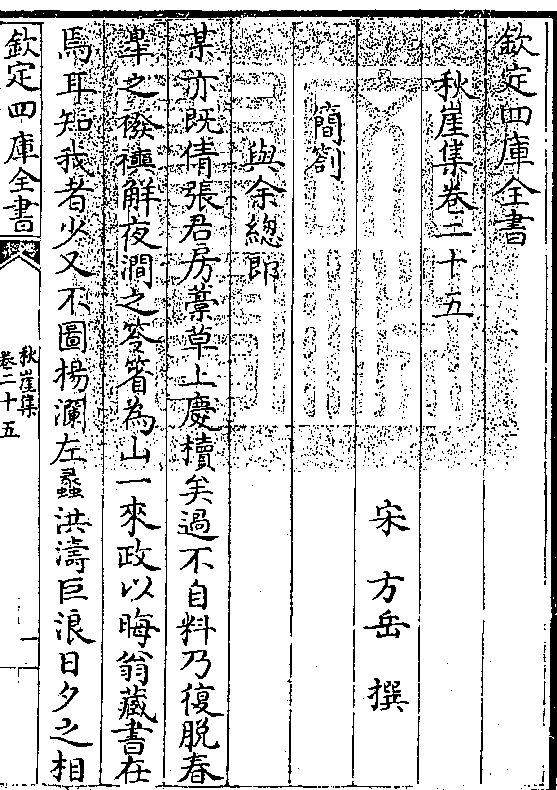 欽定四庫全書
秋崖集卷二十五
宋 方岳 撰
簡劄
與余總郎
某亦既倩張君房藳草上慶牘矣過不自料乃復脱春
皐之襏襫解夜澗之笭箵為山一來政以晦翁藏書在
焉耳知我者少又不圖楊瀾左蠡洪濤巨浪日夕之相
欽定四庫全書
秋崖集
卷二十五
一